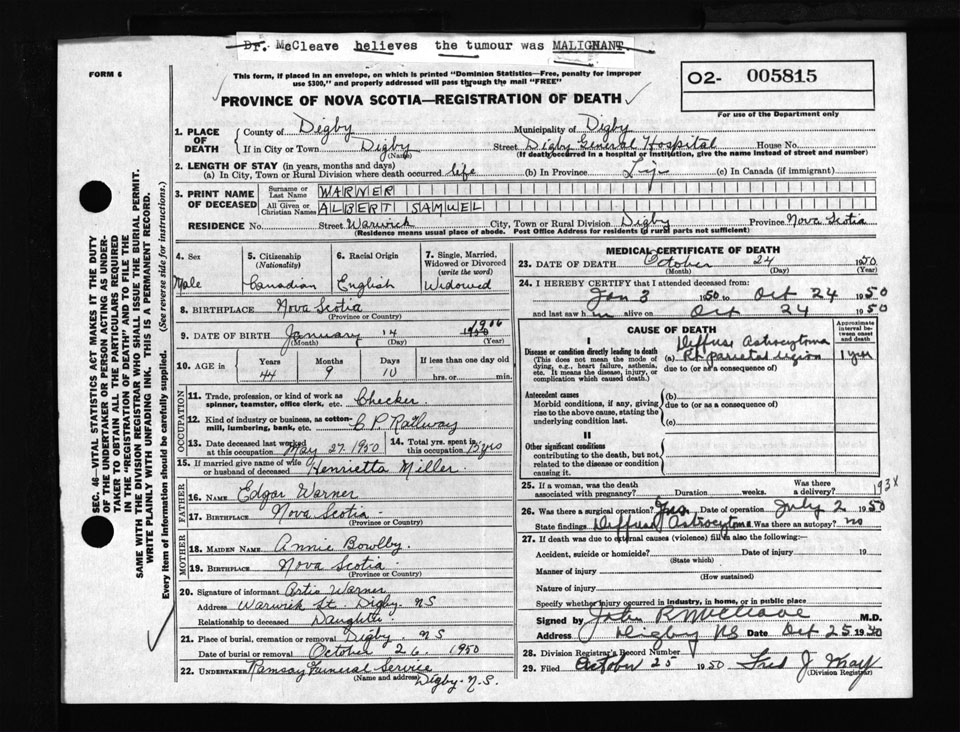 Dr. McCleave believes the tumour was MALIGNANT
FORM 6
This form, if placed in an envelope, on which is printed "Dominion Statistics—Free, penalty for improper
use $300," and properly addressed will pass through the mail "FREE"
PROVINCE OF NOVA SCOTIA—REGISTRATION OF DEATH
O2- 005815
For use of the Department only
SEC. 46—VITAL STATISTICS ACT MAKES IT THE DUTY
OF THE UNDERTAKER OR PERSON ACTING AS UNDER-
TAKER TO OBTAIN ALL THE PARTICULARS REQUIRED
IN THE "REGISTRATION OF DEATH" AND TO FILE THE
SAME WITH THE DIVISION REGISTRAR WHO SHALL ISSUE THE BURIAL PERMIT.
WRITE PLAINLY WITH UNFADING INK. THIS IS A PERMANENT RECORD.
Every item of information should be carefully supplied. (See reverse side for instructions.)
1. PLACE OF DEATH County of Digby Municipality of Digby
If in City or Town Digby (Name) Street Digby General Hospital House No.
(If death occurred in a hospital or institution, give the name instead of street and number)
2. LENGTH OF STAY (in years, months and days)
(a) In City, Town or Rural Division where death occurred life (b) In Province (c) In Canada (if immigrant)
3. PRINT NAME OF DECEASED Surname or Last Name WARNER
All Given or Christian Names ALBERT SAMUEL
RESIDENCE No. Street Warwick City, Town or Rural Division Digby Province Nova Scotia
(Residence means usual place of abode. Post Office Address for residents of rural parts not sufficient)
4. Sex Male
5. Citizenship (Nationality) Canadian
6. Racial Origin English
7. Single, Married, Widowed or Divorced (write the word) Widowed
8. BIRTHPLACE Nova Scotia
(Province or Country)
9. DATE OF BIRTH January 14 1906
(Month) (Day) (Year)
10. AGE Years 44 Months 9 Days 10 If less than one day old hrs. or min.
OCCUPATION
11. Trade, profession, or kind of work as spinner, teamster, office clerk, etc. Checker
12. Kind of industry or business, as cotton-mill, lumbering, bank, etc. C. P. Railway
13. Date deceased last worked at this occupation May 27, 1950
14. Total yrs. spent in this occupation yrs
15. If married give name of wife or husband of deceased Henrietta Miller
FATHER
16. NAME Edgar Warner
17. BIRTHPLACE Nova Scotia
(Province or Country)
MOTHER
18. MAIDEN NAME Annie Bowlby
19. BIRTHPLACE Nova Scotia
(Province or Country)
20. Signature of informant Artis Warner
Address Warwick St. Digby. N S
Relationship to deceased Daughter
21. Place of burial, cremation or removal Digby. N S
Date of burial or removal October 26, 1950
22. UNDERTAKER Ramsay Funeral Service
(Name and address) Digby. N. S.
MEDICAL CERTIFICATE OF DEATH
23. DATE OF DEATH October 24 1950
(Month) (Day) (Year)
24. I HEREBY CERTIFY that I attended deceased from:
Jan 3 1950 to Oct 24 1950
and last saw h im alive on Oct 24 1950
CAUSE OF DEATH
Approximate interval between onset and death
I
Disease or condition directly leading to death
(This does not mean the mode of dying, e.g., heart failure, asthenia, etc. It means the disease, injury, or complication which caused death.)
(a) Diffuse Astrocytoma Rt parietal region 1 year
due to (or as a consequence of)
Antecedent causes
Morbid conditions, if any, giving rise to the above cause, stating the underlying condition last.
(b)
due to (or as a consequence of)
(c)
II
Other significant conditions
contributing to the death, but not related to the disease or condition causing it.
25. If a woman, was the death associated with pregnancy? Duration weeks. Was there a delivery?
193X
26. Was there a surgical operation? Yes Date of operation July 2 1950
State findings Diffuse Astrocytoma Was there an autopsy? no
27. If death was due to external causes (violence) fill in also the following:—
Accident, suicide or homicide? Date of injury 19
(State which)
Manner of injury
(How sustained)
Nature of injury
Specify whether injury occurred in industry, in home, or in public place
Signed by John R McCleave M.D.
Address Digby NS Date Oct 25 1950
28. Division Registrar's Record Number
29. Filed October 25 1950 Fred J. May
(Division Registrar)